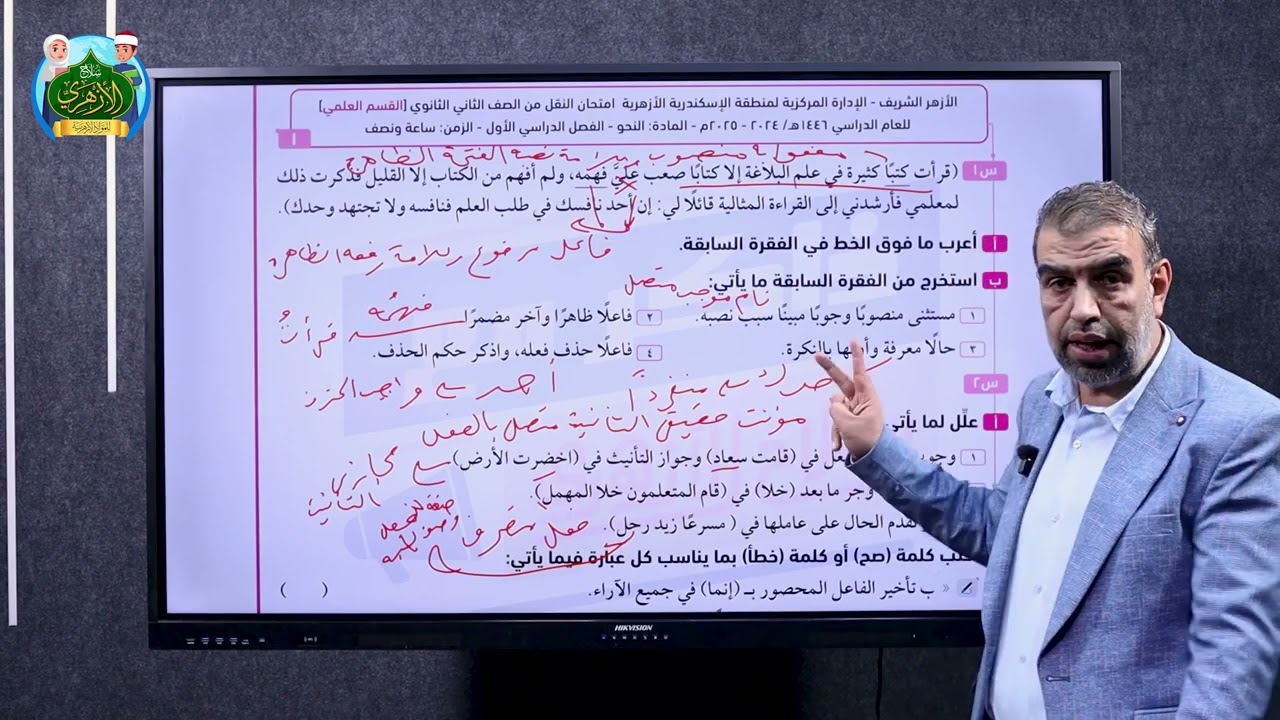 سلاح
الأزهري
للمواد الأزهرية
الأزهر الشريف - الإدارة المركزية لمنطقة الإسكندرية الأزهرية امتحان النقل من الصف الثاني الثانوي [القسم العلمي]
للعام الدراسي ١٤٤٦هـ/ ٢٠٢٤ - ٢٠٢٥م - المادة: النحو - الفصل الدراسي الأول - الزمن: ساعة ونصف
١
مفعول به منصوب وعلامة نصبه الفتحة الظاهرة
س١ (قرأت كتبًا كثيرة في علم البلاغة إلا كتابًا صعب عليَّ فهمه، ولم أفهم من الكتاب إلا القليل فذكرت ذلك
لمعلمي فأرشدني إلى القراءة المثالية قائلًا لي: إن أحد نافسك في طلب العلم فنافسه ولا تجتهد وحدك).
أ أعرب ما فوق الخط في الفقرة السابقة.
فاعل مرفوع وعلامة رفعه الظاهرة
ب استخرج من الفقرة السابقة ما يأتي:
تام موجب متصل
١ مستثنى منصوبًا وجوبًا مبينًا سبب نصبه. ٢ فاعلًا ظاهرًا وآخر مضمرًا
فهمُه قرأتُ
٣ حالًا معرفة وأولها بالنكرة. ٤ فاعلًا حذف فعله، واذكر حكم الحذف.
وحدك منفردًا أحد واجب الحذف
س٢
مؤنث حقيقي التأنيث متصل بالفعل
أ علِّل لما يأتي
١ في (قامت سعاد) وجواز التأنيث في (اخضرت الأرض)
مجازي التأنيث
وجر ما بعد (خلا) في (قام المتعلمون خلا المهمل).
تقدم الحال على عاملها في ( مسرعًا زيد رجل).
فعل متصرف
كلمة (صح) أو كلمة (خطأ) بما يناسب كل عبارة فيما يأتي:
ب تأخير الفاعل المحصور بـ (إنما) في جميع الآراء. ( )
HIKVISION